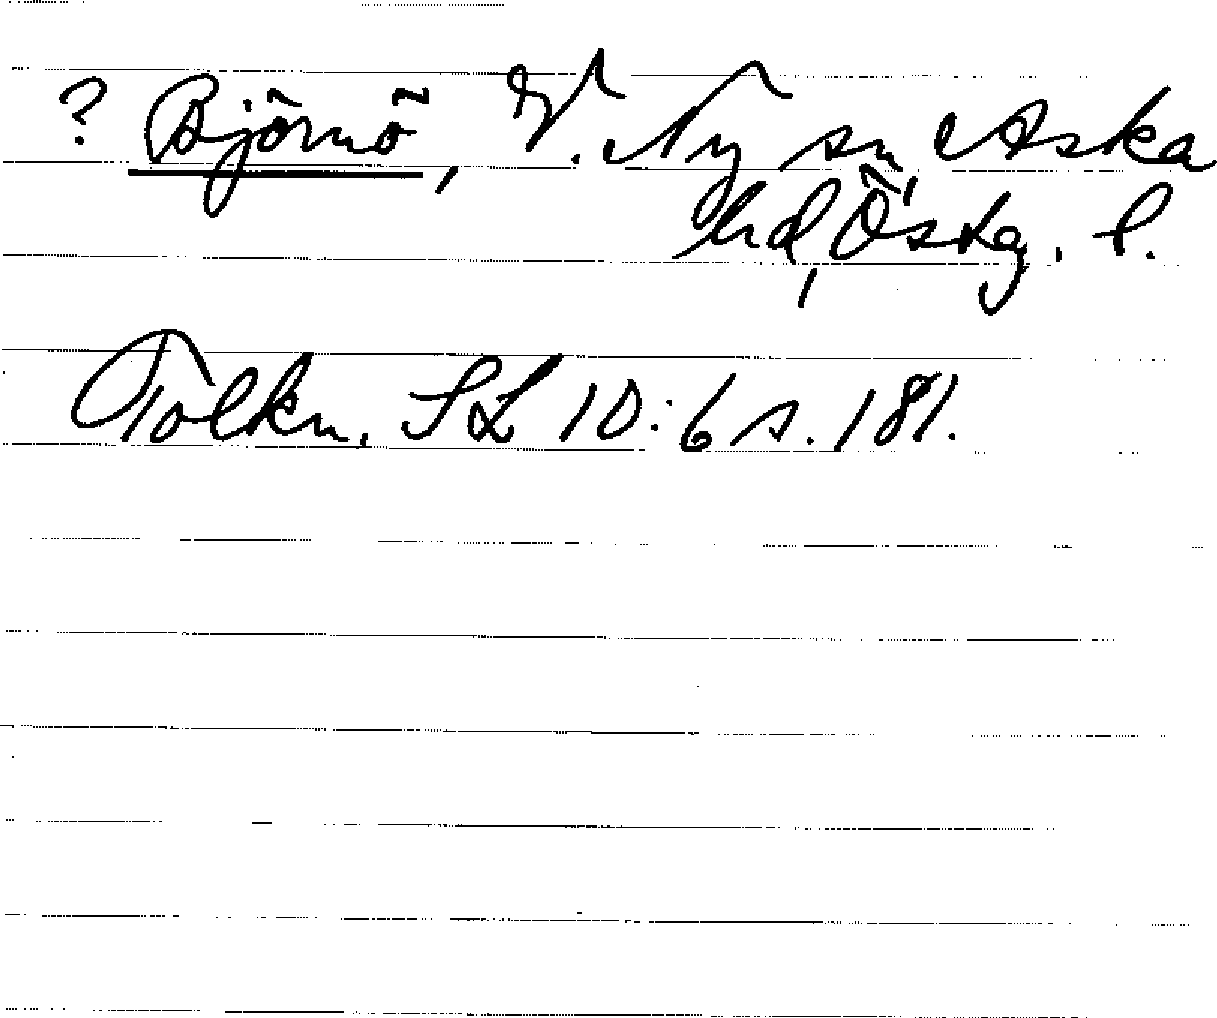 ? Björnö, V. Ny sn, Aska
hd, Östg. l.
Tolkn. SL 10:6 s. 181.